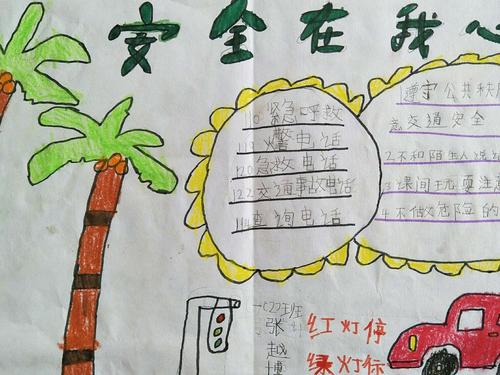 安全在我心
110紧急呼救
119火警电话
120急救电话
122交通事故电话
114查询电话
1遵守公共秩序
意交通安全
2.不和陌生人说话
3.课间玩耍注意
4.不做危险的
一(2)班
张
越
博
红灯停
绿灯行